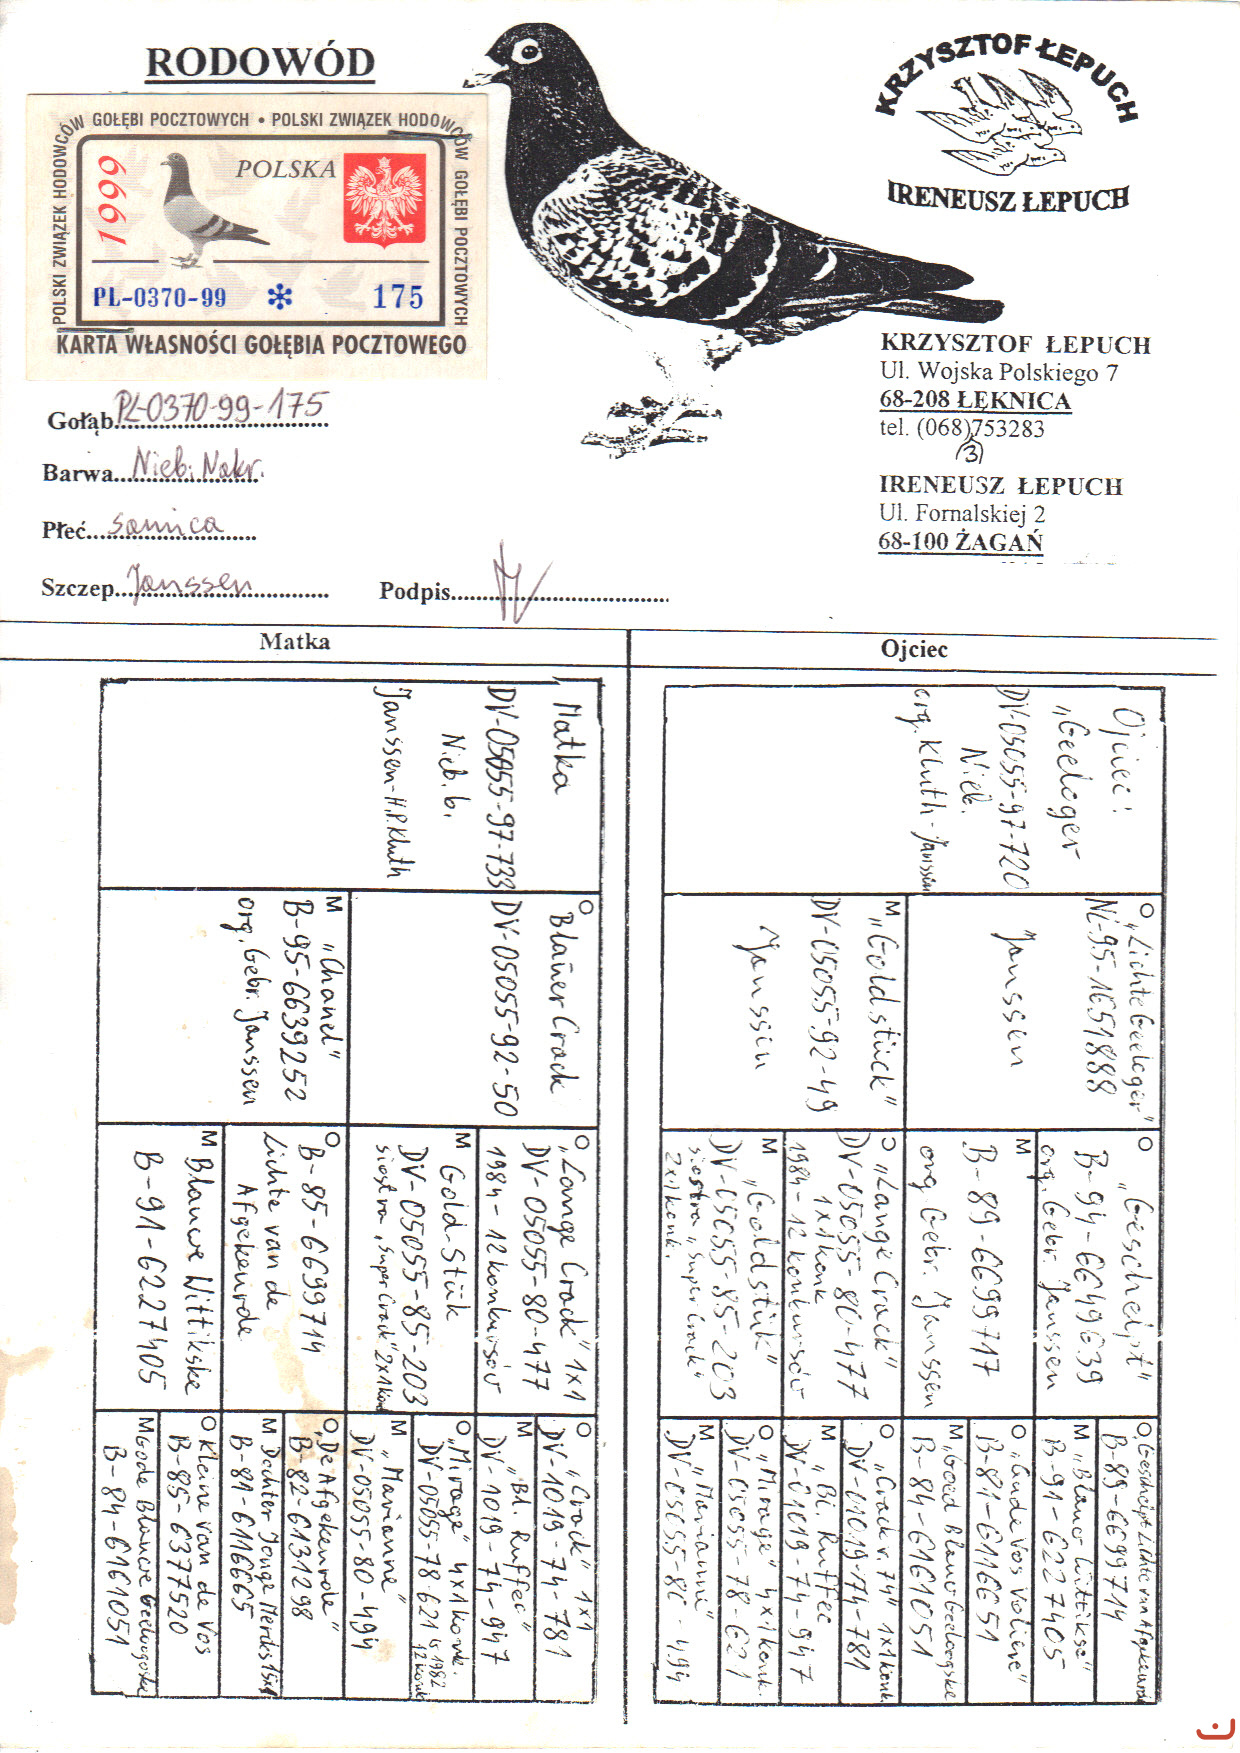 RODOWÓD
POLSKI ZWIĄZEK HODOWCÓW GOŁĘBI POCZTOWYCH • POLSKI ZWIĄZEK HODOWCÓW GOŁĘBI POCZTOWYCH
1999
POLSKA
PL-0370-99 * 175
KARTA WŁASNOŚCI GOŁĘBIA POCZTOWEGO
KRZYSZTOF ŁEPUCH
IRENEUSZ ŁEPUCH
KRZYSZTOF ŁEPUCH
Ul. Wojska Polskiego 7
68-208 ŁĘKNICA
tel. (068)753283
(3)
IRENEUSZ ŁEPUCH
Ul. Fornalskiej 2
68-100 ŻAGAŃ
Gołąb PL-0370-99-175
Barwa Nieb. Nakr.
Płeć samica
Szczep Janssen
Podpis
Matka
Matka
DV-05055-97-733
Nieb. b.
Janssen-H.P.Kluth
O Blauer Crack
DV-05055-92-50
M "Chanel"
B-95-6639252
org. Gebr. Janssen
O "Lange Crack" 1x1
DV-05055-80-477
1984-12 konkursów
M Gold-Stük
DV-05055-85-203
siostra "Super Crack" 2x1konk
O B-85-6699714
Lichte van de
Afgekeurde
M Blauwe Wittikske
B-91-6227405
O "Crack" 1x1
DV-1019-74-781
M "Bl. Ruffec"
DV-1019-74-947
O "Mirage" 4x1konk.
DV-05055-78-621 w 1982
12 konk
M "Marianne"
DV-05055-80-494
O "De Afgekeurde"
B-82-6131298
M Dochter Jonge Merckx 15x1
B-81-6116665
O Kleine van de Vos
B-85-6377520
M Goede Blauwe Geeloogske
B-84-6161051
Ojciec
Ojciec:
"Geeloger"
DV-05055-97-720
Nieb.
org. Kluth-Janssen
O "Lichte Geeloger"
NL-95-1651888
Janssen
M "Goldstück"
DV-05055-92-49
Janssen
O "Geschelpt"
B-94-6649639
org. Gebr. Janssen
M
B-89-6699717
org. Gebr. Janssen
O "Lange Crack"
DV-05055-80-477
1x1konk
1984-12 konkursów
M "Goldstük"
DV-05055-85-203
siostra "Super Crack"
2x1konk.
O Geschelpt Lichte van Afgekeurde
B-89-6699714
M "Blauw Wittikse"
B-91-6227405
O "Oude Vos Voliere"
B-81-6116651
M "Goed Blauw Geeloogske
B-84-6161051
O "Crack v. 74" 1x1konk
DV-01019-74-781
M "Bl. Ruffec
DV-01019-74-947
O "Mirage" 4x1konk.
DV-05055-78-621
M "Marianne"
DV-05055-80-494